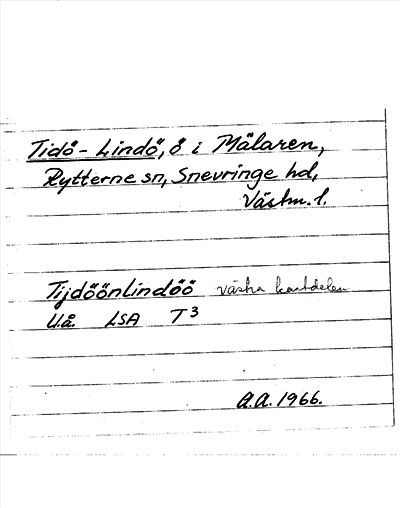 Tidö-Lindö, ö i Mälaren,
Rytterne sn, Snevringe hd,
Västm. l.
Tijdöönlindöö västra kartdelen
U.å. LSA T3
A.A. 1966.